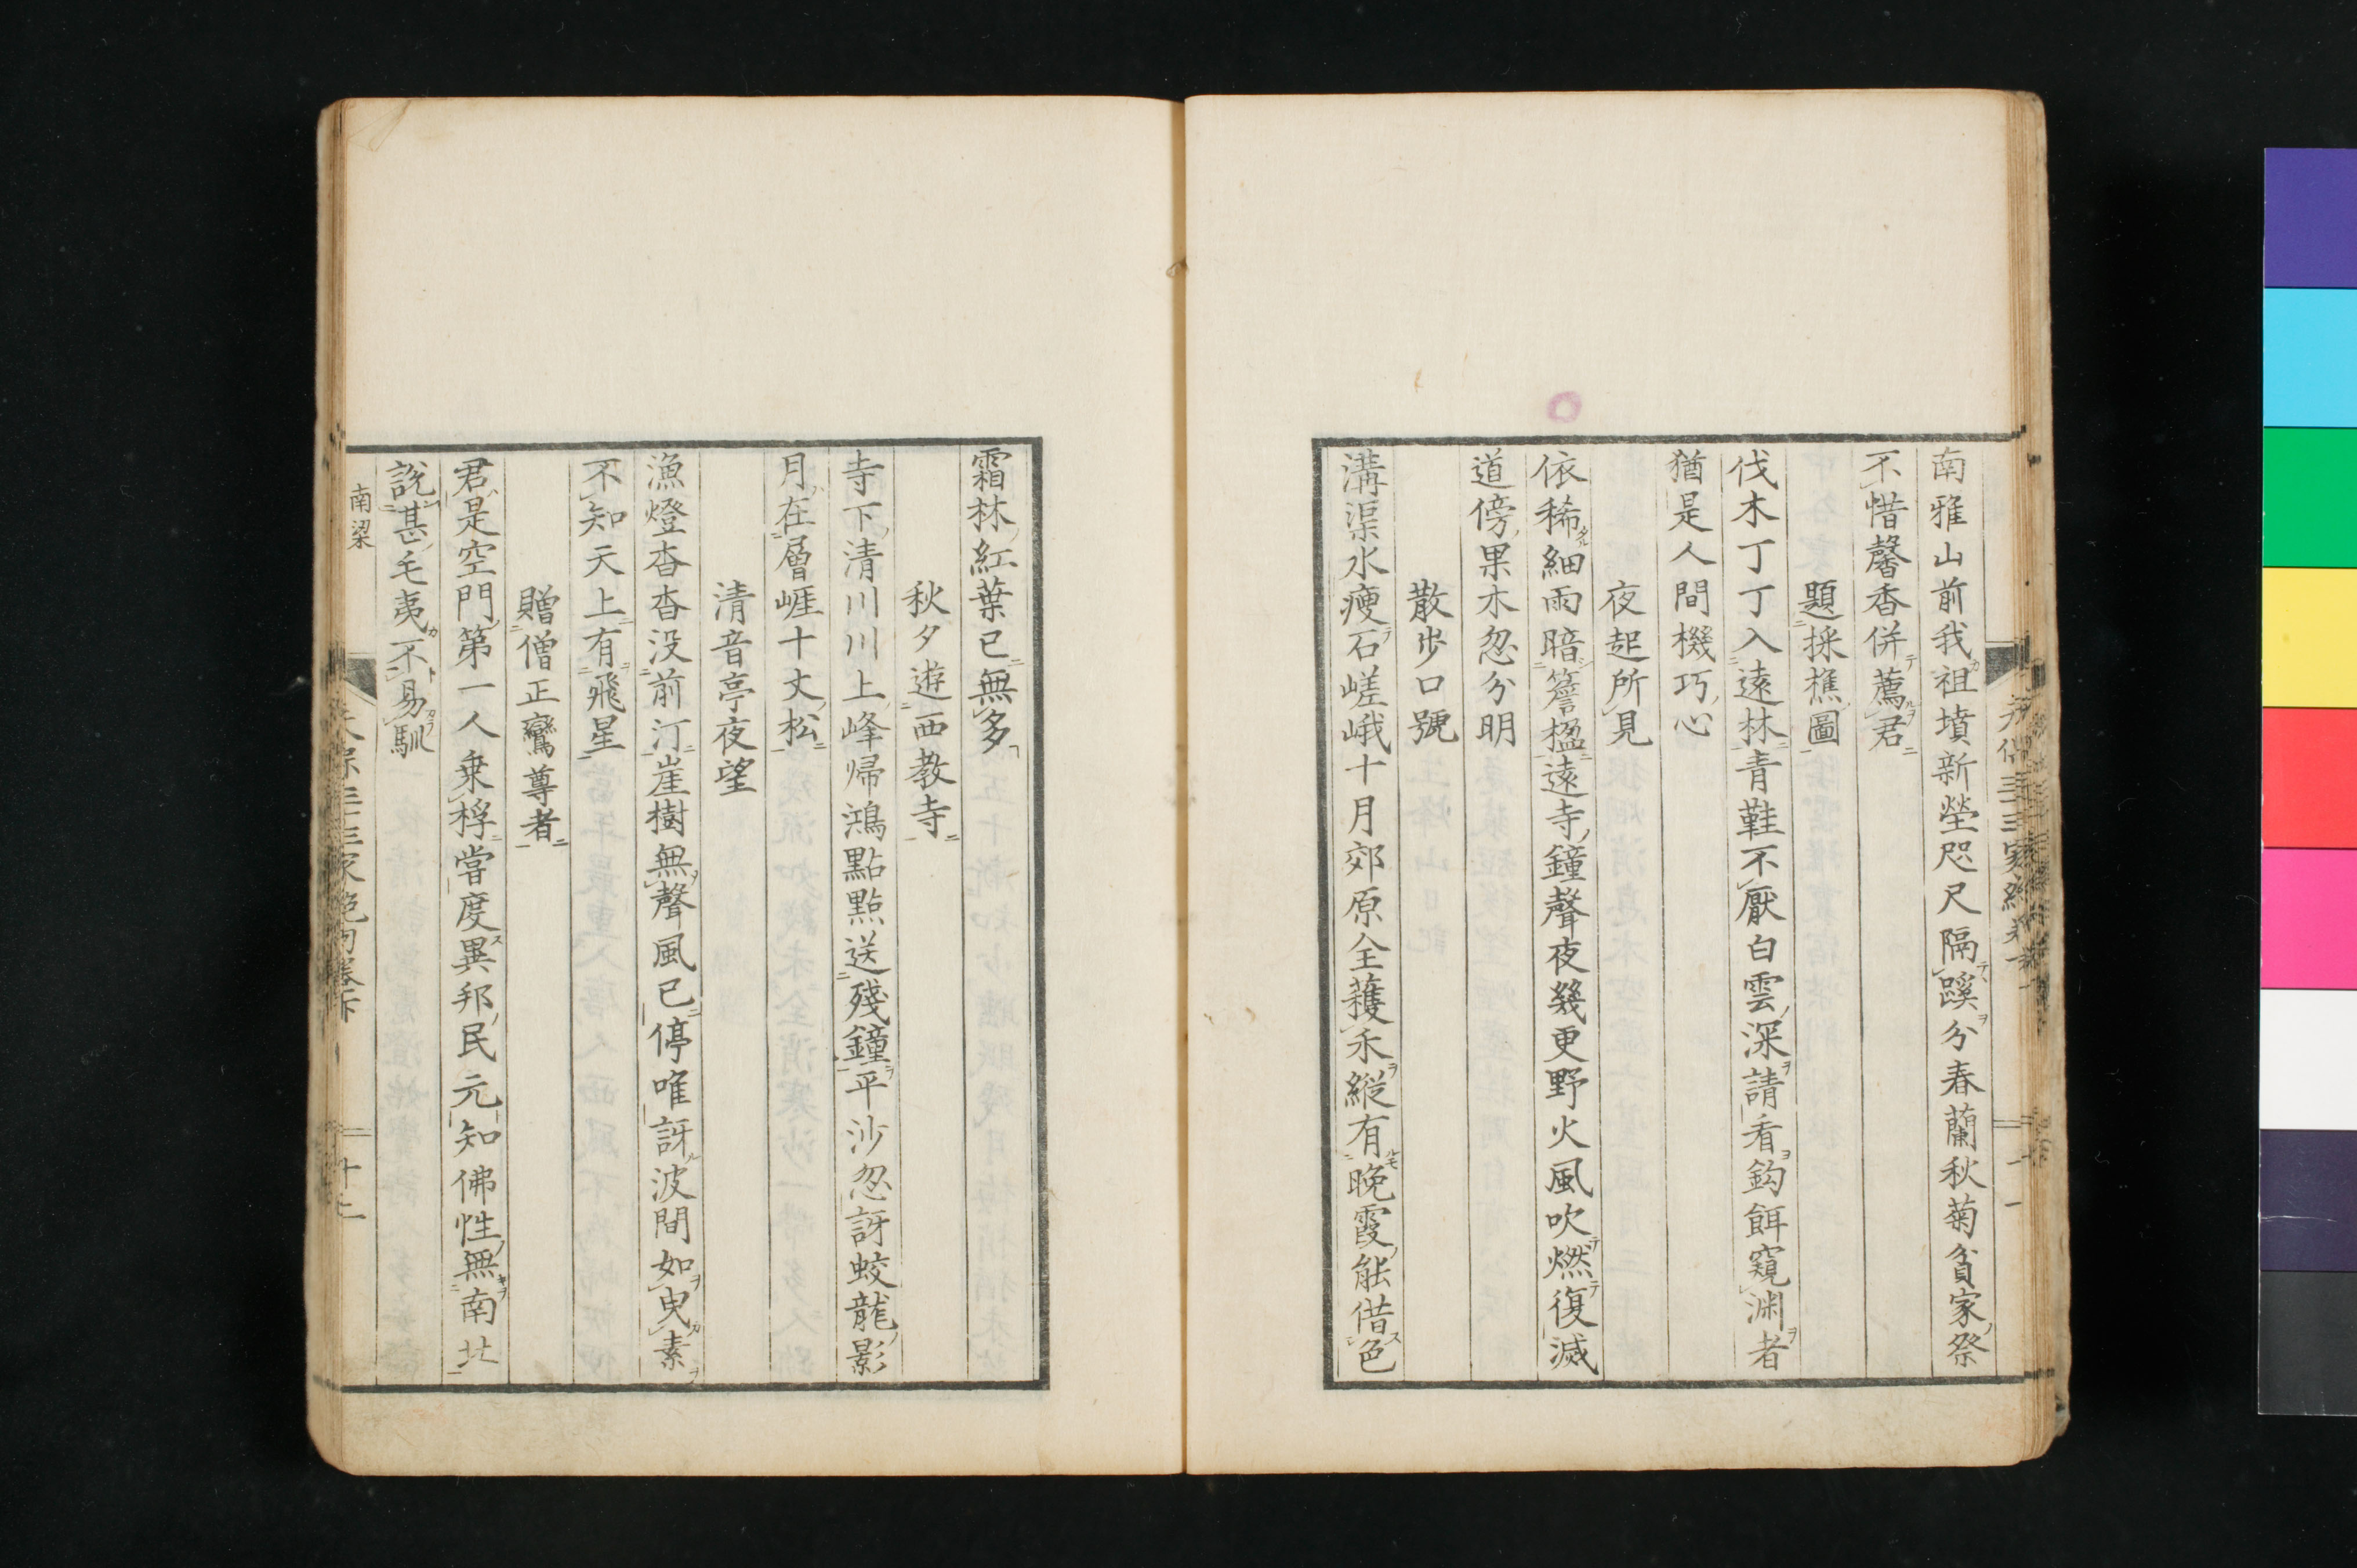 南雅山前我祖墳新塋咫尺隔蹊分春蘭秋菊貧家祭
不惜馨香併薦君
題採樵圖
伐木丁丁入遠林青鞋不厭白雲深請看鈎餌窺渊者
猶是人間機巧心
夜起所見
依稀細雨暗簷楹遠寺鐘聲夜幾更野火風吹燃復滅
道傍果木忽分明
散步口號
溝渠水瘦石嵯峨十月郊原全穫禾縱有晚霞能借色
霜林紅葉已無多
秋夕遊西教寺
寺下清川川上峰帰鴻點點送殘鐘平沙忽訝蛟龍影
月在層崕十丈松
清音亭夜望
漁燈杳杳没前汀崖樹無聲風已停唯訝波間如曳素
不知天上有飛星
贈僧正鸞尊者
君是空門第一人乗桴嘗度異邦民元知佛性無南北
說甚毛夷不易馴
南梁